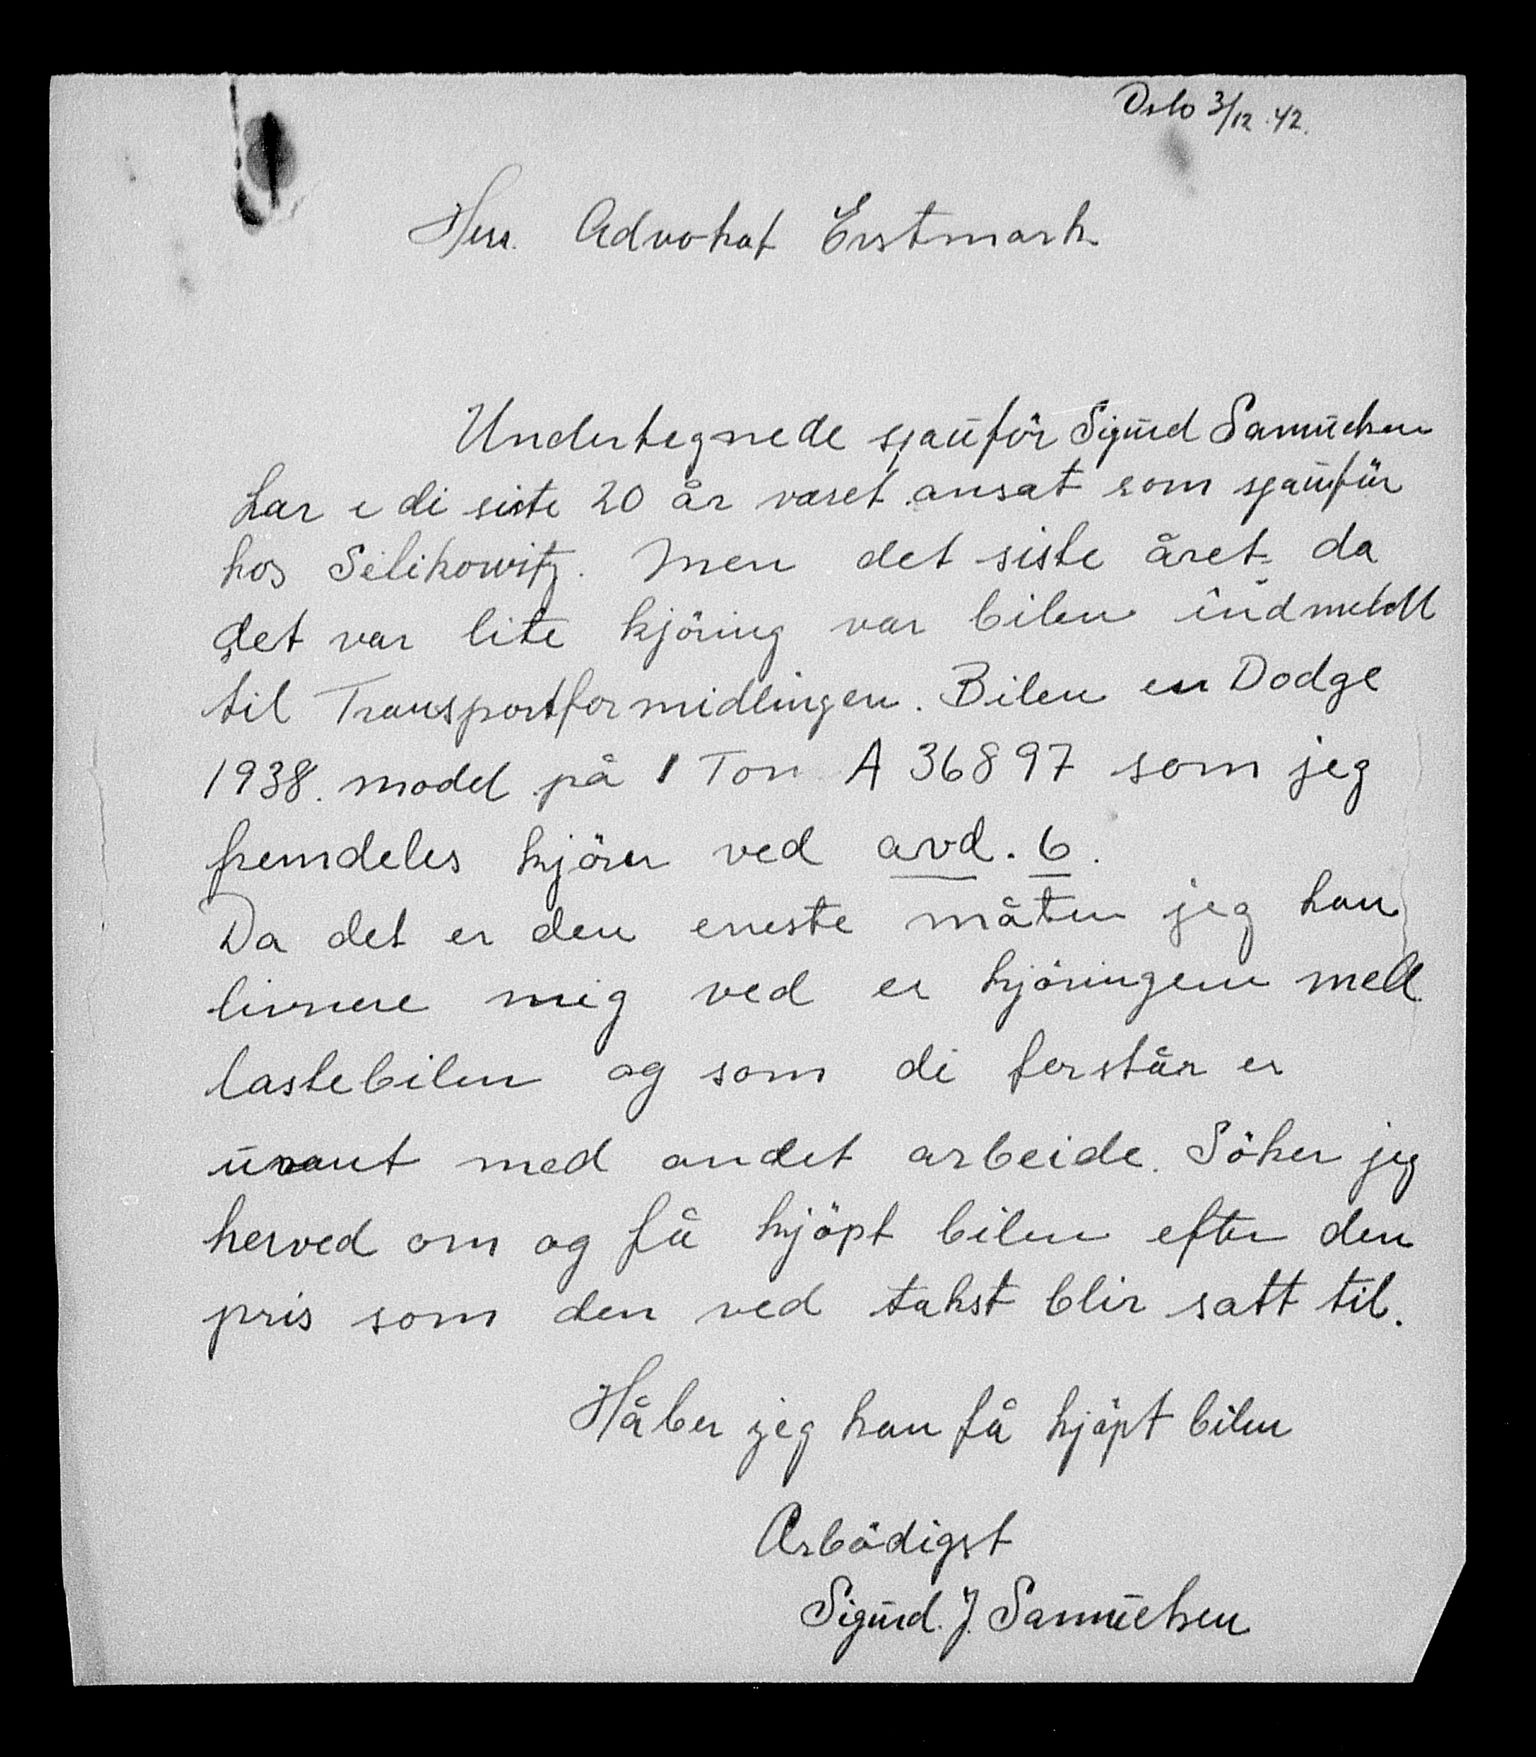 Oslo 3/12.42.
Herr. Advokat Erstmark
Undertegnede sjauför Sigurd Samuelsen
har i di siste 20 år været ansat som sjauför
hos Selikowitz. Men det siste året da
det var lite kjöring var bilen indmeldt
til Transportformidlingen. Bilen en Dodge
1938. model på 1 Ton A 36897 som jeg
fremdeles kjörer ved avd. 6.
Da det er den eneste måten jeg kan
livnere mig ved er kjöringen med
lastebilen og som di forstår er
uvant med andet arbeide. Söker jeg
herved om og få kjöpt bilen efter den
pris som den ved takst blir satt til.
Håber jeg kan få kjöpt bilen
Arbödigst
Sigurd. J. Samuelsen